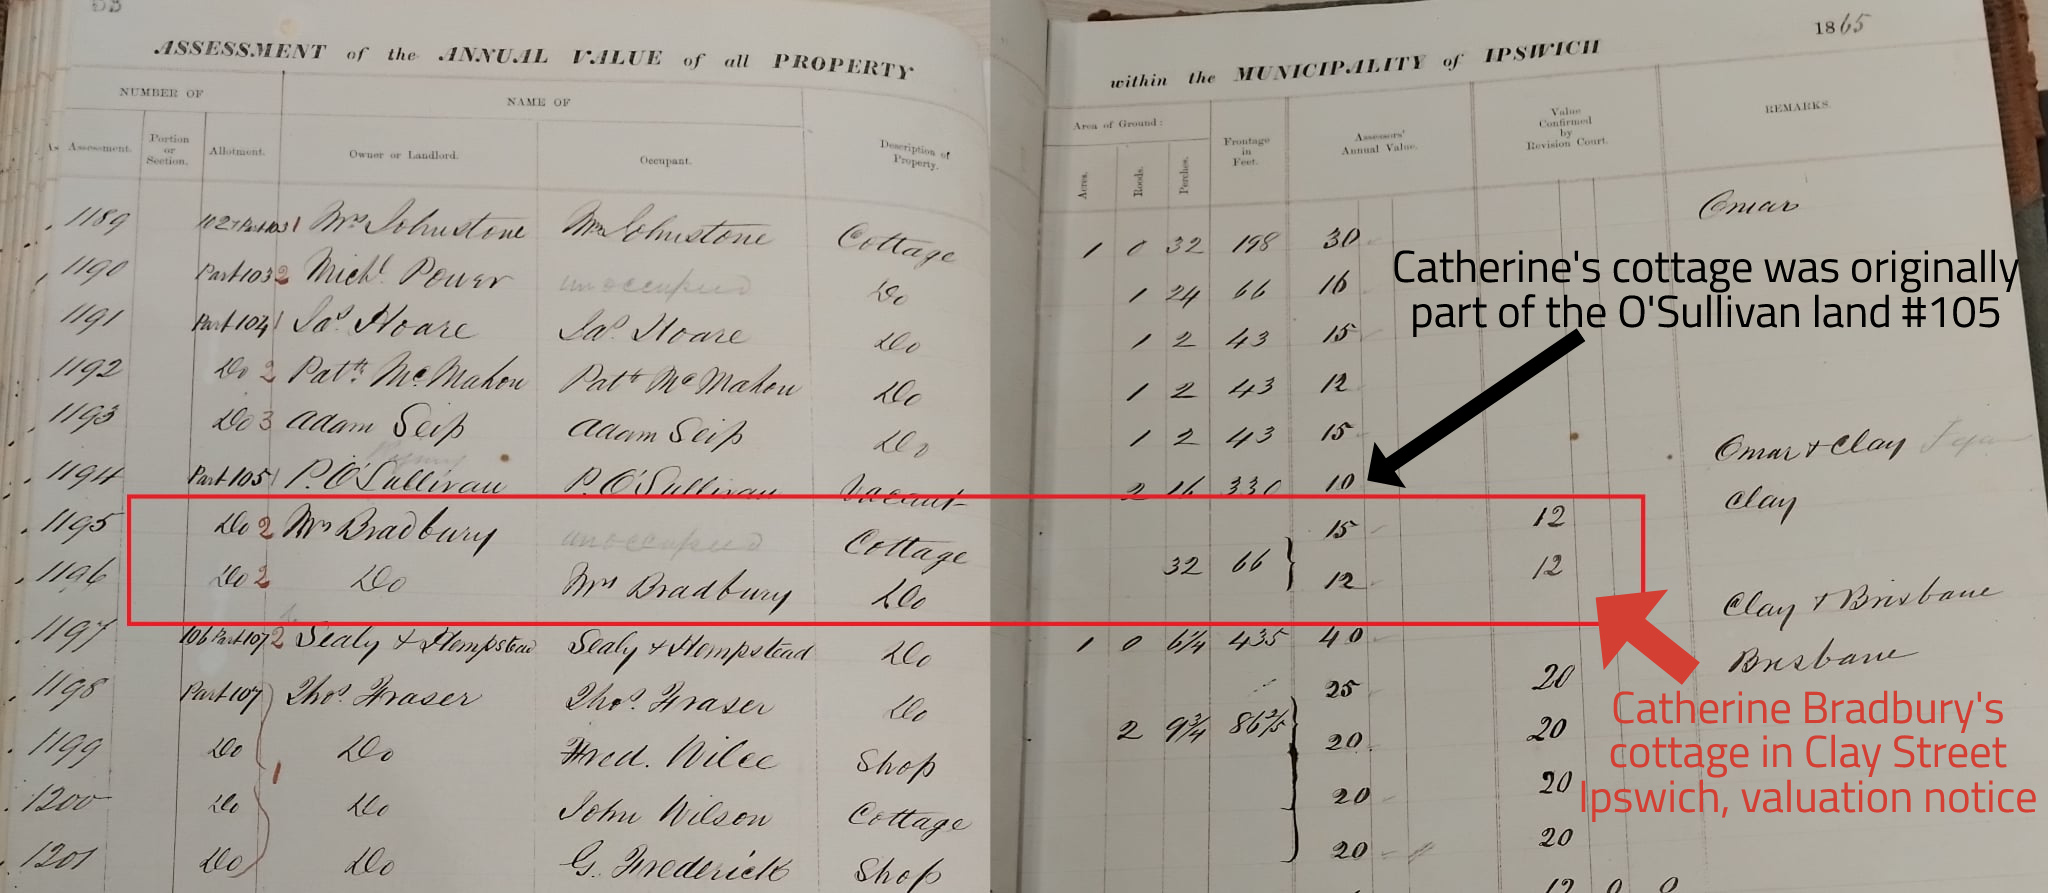 53
1865
ASSESSMENT of the ANNUAL VALUE of all PROPERTY within the MUNICIPALITY of IPSWICH
NUMBER OF NAME OF
Assessment. Portion or Section. Allotment. Owner or Landlord. Occupant. Description of Property. Area of Ground: Acres. Roods. Perches. Frontage in Feet. Assessors' Annual Value. Value Confirmed by Revision Court. REMARKS.
Omar
1189 102 + Part 103 1 Mrs Johnstone Mrs Johnstone Cottage 1 0 32 198 30
1190 Part 103 2 Michl. Power unoccupied Do 1 24 66 16
1191 Part 104 1 Jas. Hoare Jas. Hoare Do 1 2 43 15
1192 Do 2 Patk. McMahon Patk McMahon Do 1 2 43 12
1193 Do 3 Adam Seip Adam Seip Do 1 2 43 15
1194 Part 105 1 P. O'Sullivan P. O'Sullivan Vacant 2 16 330 10 Omar & Clay
1195 Do 2 Mrs Bradbury unoccupied Cottage 15 12 Clay
1196 Do 2 Do Mrs Bradbury Do 32 66 12 12
1197 106 Part 107 2 Sealy & Hempstead Sealy & Hempstead Do 1 0 6 1/4 435 40 Clay & Brisbane
1198 Part 107 Thos. Fraser Thos. Fraser Do 25 20 Brisbane
1199 Do Do Fred. Wilee Shop 2 9 3/4 86 2/5 20 20
1200 Do 1 Do John Wilson Cottage 20 20
1201 Do Do G. Frederick Shop 20 20
12 0 0
Catherine's cottage was originally
part of the O'Sullivan land #105
Catherine Bradbury's
cottage in Clay Street
Ipswich, valuation notice